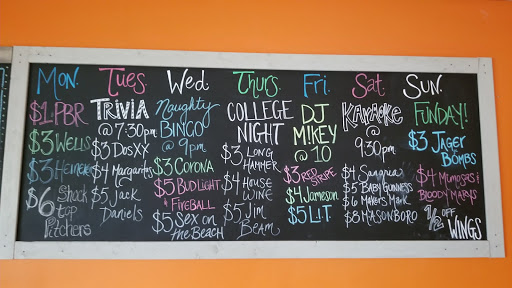 Mon.
$1 PBR
$3 Wells
$3 Heineken
$6 Shock
top
Pitchers
Tues.
TRIVIA
@ 7:30pm
$3 Dos XX
$4 Margaritas
$5 Jack
Daniels
Wed.
Naughty
BINGO
@ 9pm
$3 Corona
$5 Bud Light
+ Fireball
$5 Sex on
the Beach
Thurs.
COLLEGE
NIGHT
$3 Long
Hammer
$4 House
Wine
$5 Jim
Beam
Fri.
DJ
M!KEY
@ 10
$3 Red Stripe
$4 Jameson
$5 L.I.T.
Sat.
KARAOKE
@
9:30pm
$4 Sangrias
$5 Baby Guinness
$6 Makers Mark
$8 Masonboro
Sun.
FUNDAY!
$3 Jager
Bombs
$4 Mimosas &
Bloody Marys
1/2 OFF
WINGS